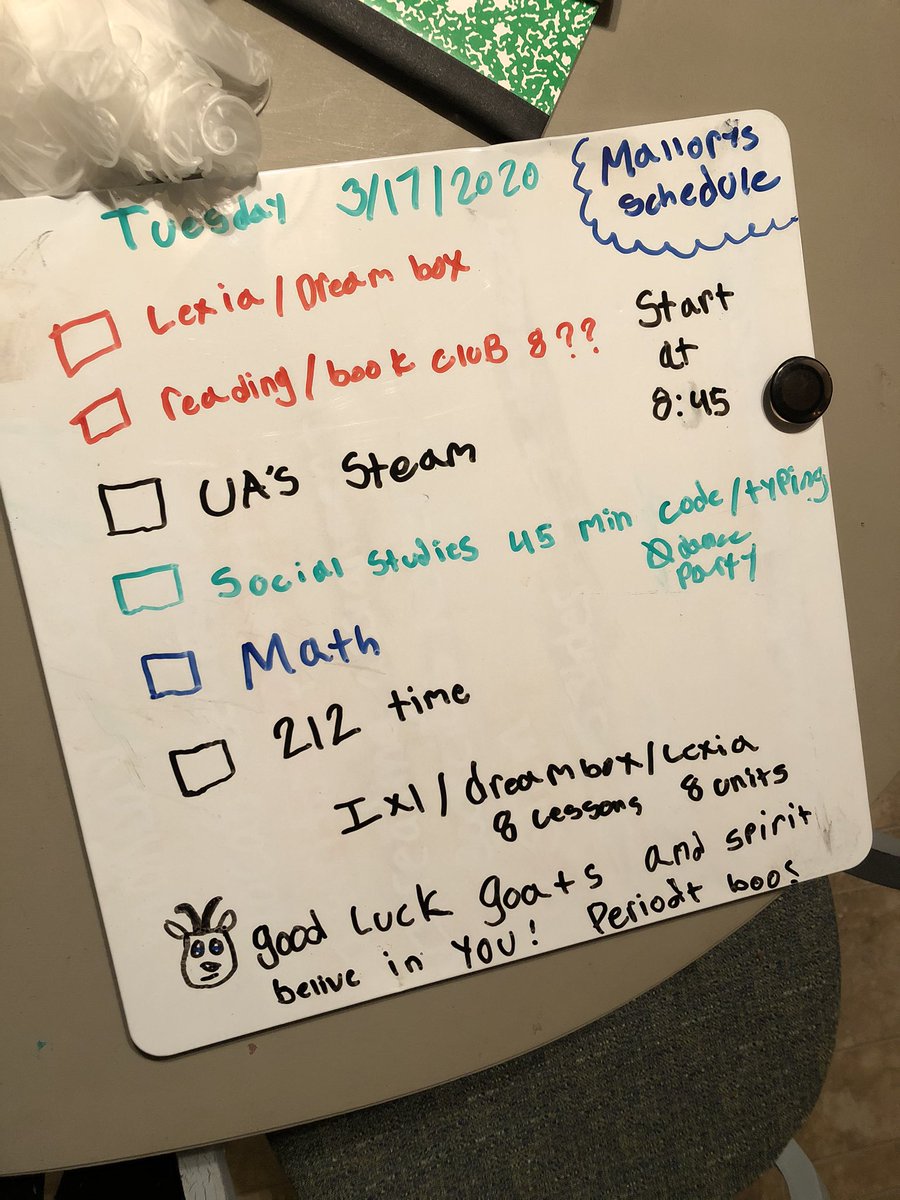 Tuesday 3/17/2020
Mallorys
schedule
Lexia/Dream box
reading/book cluB 8??
Start
at
8:45
UA's Steam
Social studies 45 min code/typing
dance
party
Math
212 time
Ixl/dreambox/Lexia
8 Lessons 8 units
good Luck goats and spirit
belive in YOU! Periodt boo!